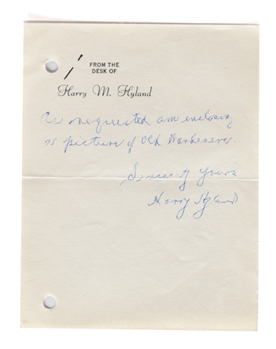 FROM THE
DESK OF
Harry M. Hyland
As requested am enclosing
picture of Old
Sincerely Yours
Harry Hyland